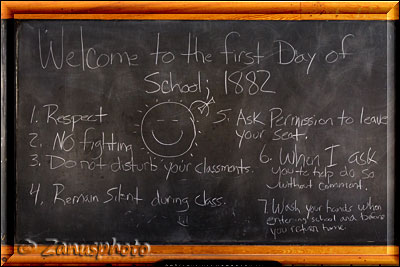 Welcome to the first Day of
School; 1882
1. Respect
2. NO fighting
3. Do not disturb your classments.
4. Remain Silent during class.
5. Ask Permission to leave
your Seat.
6. When I ask
you to help do so
without comment.
7. Wash your hands when
entering school and before
you return home.
© Zanusphoto